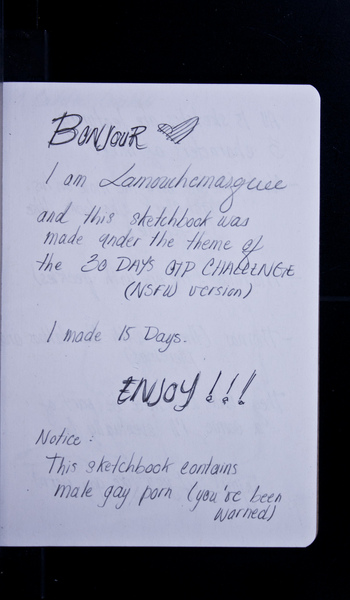 BONJOUR
I am Lamouchemasquee
and this sketchbook was
made under the theme of
the 30 DAYS OTP CHALLENGE
(NSFW version)
I made 15 Days.
ENJOY!!!
Notice:
This sketchbook contains
male gay porn (you've been
warned)